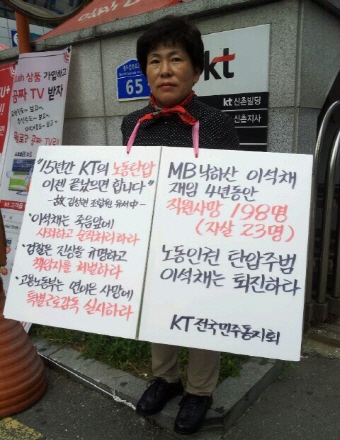 상품 가입하고
TV 받자
65
kt
kt 신촌빌딩
신촌지사
"15년간 KT의 노동탄압
이젠 끝났으면 합니다"
-故 김성현 조합원 유서中-
·이석채는 죽음앞에
사죄하고 설적처리하라
·검찰은 진상을 규명하고
책임자를 처벌하라
·고용노동부는 연이은 사망에
특별근로감독 실시하라
MB낙하산 이석채
재임 4년동안
직원사망 198명
(자살 23명)
노동인권 탄압주범
이석채는 퇴진하라
KT 전국민주동지회